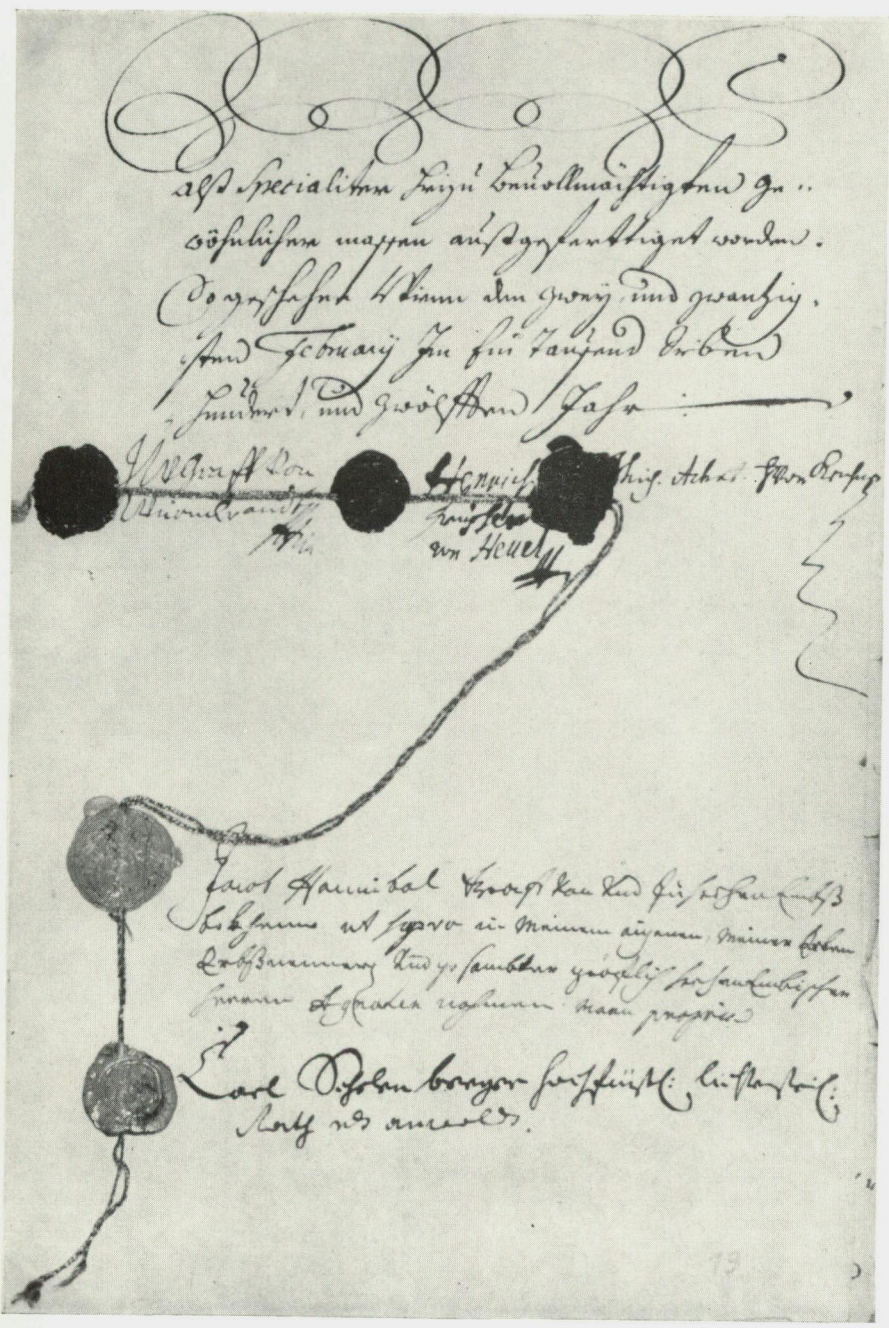 alß Specialiter hirzu Bevollmächtigten ge..
wöhnlicher massen außgeferttiget worden.
So geschehen Wienn den zwey und zwantzig.
sten February Im Ein Tausend Siben
Hundert und zwölfften Jahr
Graff von
Henrich
von Heuel
Jacob Hannibal Graf von und zu Hohen Embß
bekhenne ut supra in Meinem aigenen, Meiner Erben
und gesambter gräfflich hochen Embischer
Herren Agnaten nahmen manu propria
Carl Schelenberger hochfürstl: lichtenstei:
Rath
19